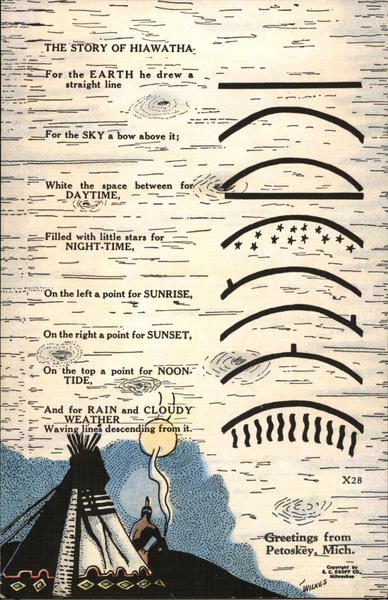 THE STORY OF HIAWATHA
For the EARTH he drew a
straight line
For the SKY a bow above it;
White the space between for
DAYTIME,
Filled with little stars for
NIGHT-TIME,
On the left a point for SUNRISE,
On the right a point for SUNSET,
On the top a point for NOON-
TIDE,
And for RAIN and CLOUDY
WEATHER
Waving lines descending from it.
X28
Greetings from
Petoskey, Mich.
Copyright by
E. C. KROPP CO.
Milwaukee
WILKES